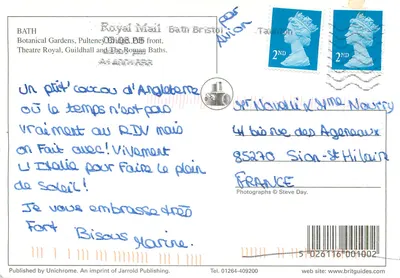 BATH
Botanical Gardens, Pulteney Bridge, front.
Theatre Royal, Guildhall and The Roman Baths.
Royal Mail
Bath Bristol
09.08.05
par avion
2ND
2ND
Un ptit' coucou d'Angleterre
où le temps n'est pas
vraiment au RDV mais
on fait avec! Vivement
L'Italie pour faire le plein
de Soleil!
Je vous embrasse très
Fort Bisous
Marine.
Mr & Mme
85270 Sion-St Hilaire
FRANCE
Photographs © Steve Day.
5 026116 001002
Published by Unichrome. An imprint of Jarrold Publishing.
Tel. 01264-409200
web site: www.britguides.com